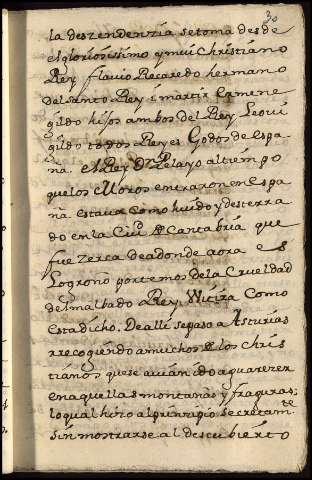 30
la deszendenzia se toma desde
el gloriosissimo y mui Christiano
Rey flauio Recaredo hermano
del santo Rey i martir Ermene
gildo hijos ambos del Rey Leoui
gildo todos Reyes Godos de Espa
ña. el Rey Dn Pelayo al tiempo
que los Moros entraron en Espa
ña estaua como huido y desterra
do en la Ciud de Cantabria que
fue zerca de adonde aora es
Logroño por temor de la Crueldad
del malbado Rey Witiza Como
esta dicho. De alli se paso a Asturias
rrecogiendo a muchos de los chris
tianos que se auian ido a guarezer
en aquellas montañas y fraguras:
lo qual hizo al prinzipio secretamte
sin mostrarse al descubierto